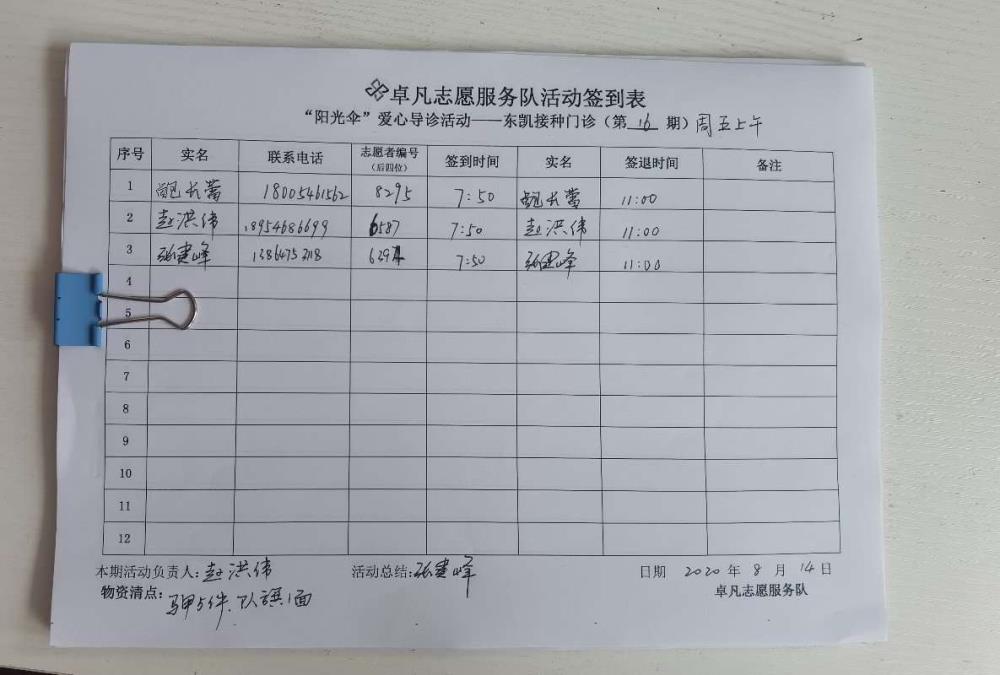 卓凡志愿服务队活动签到表
“阳光伞”爱心导诊活动——东凯接种门诊（第 16 期）周五上午
序号 实名 联系电话 志愿者编号（后四位） 签到时间 实名 签退时间 备注
1 鲍长蕾 18005461562 8295 7:50 鲍长蕾 11:00
2 赵洪伟 18954686699 6587 7:50 赵洪伟 11:00
3 张建峰 6394 7:50 张建峰 11:00
4
5
6
7
8
9
10
11
12
本期活动负责人：赵洪伟 活动总结：张建峰 日期 2020 年 8 月 14 日
物资清点：马甲5件、队旗1面 卓凡志愿服务队